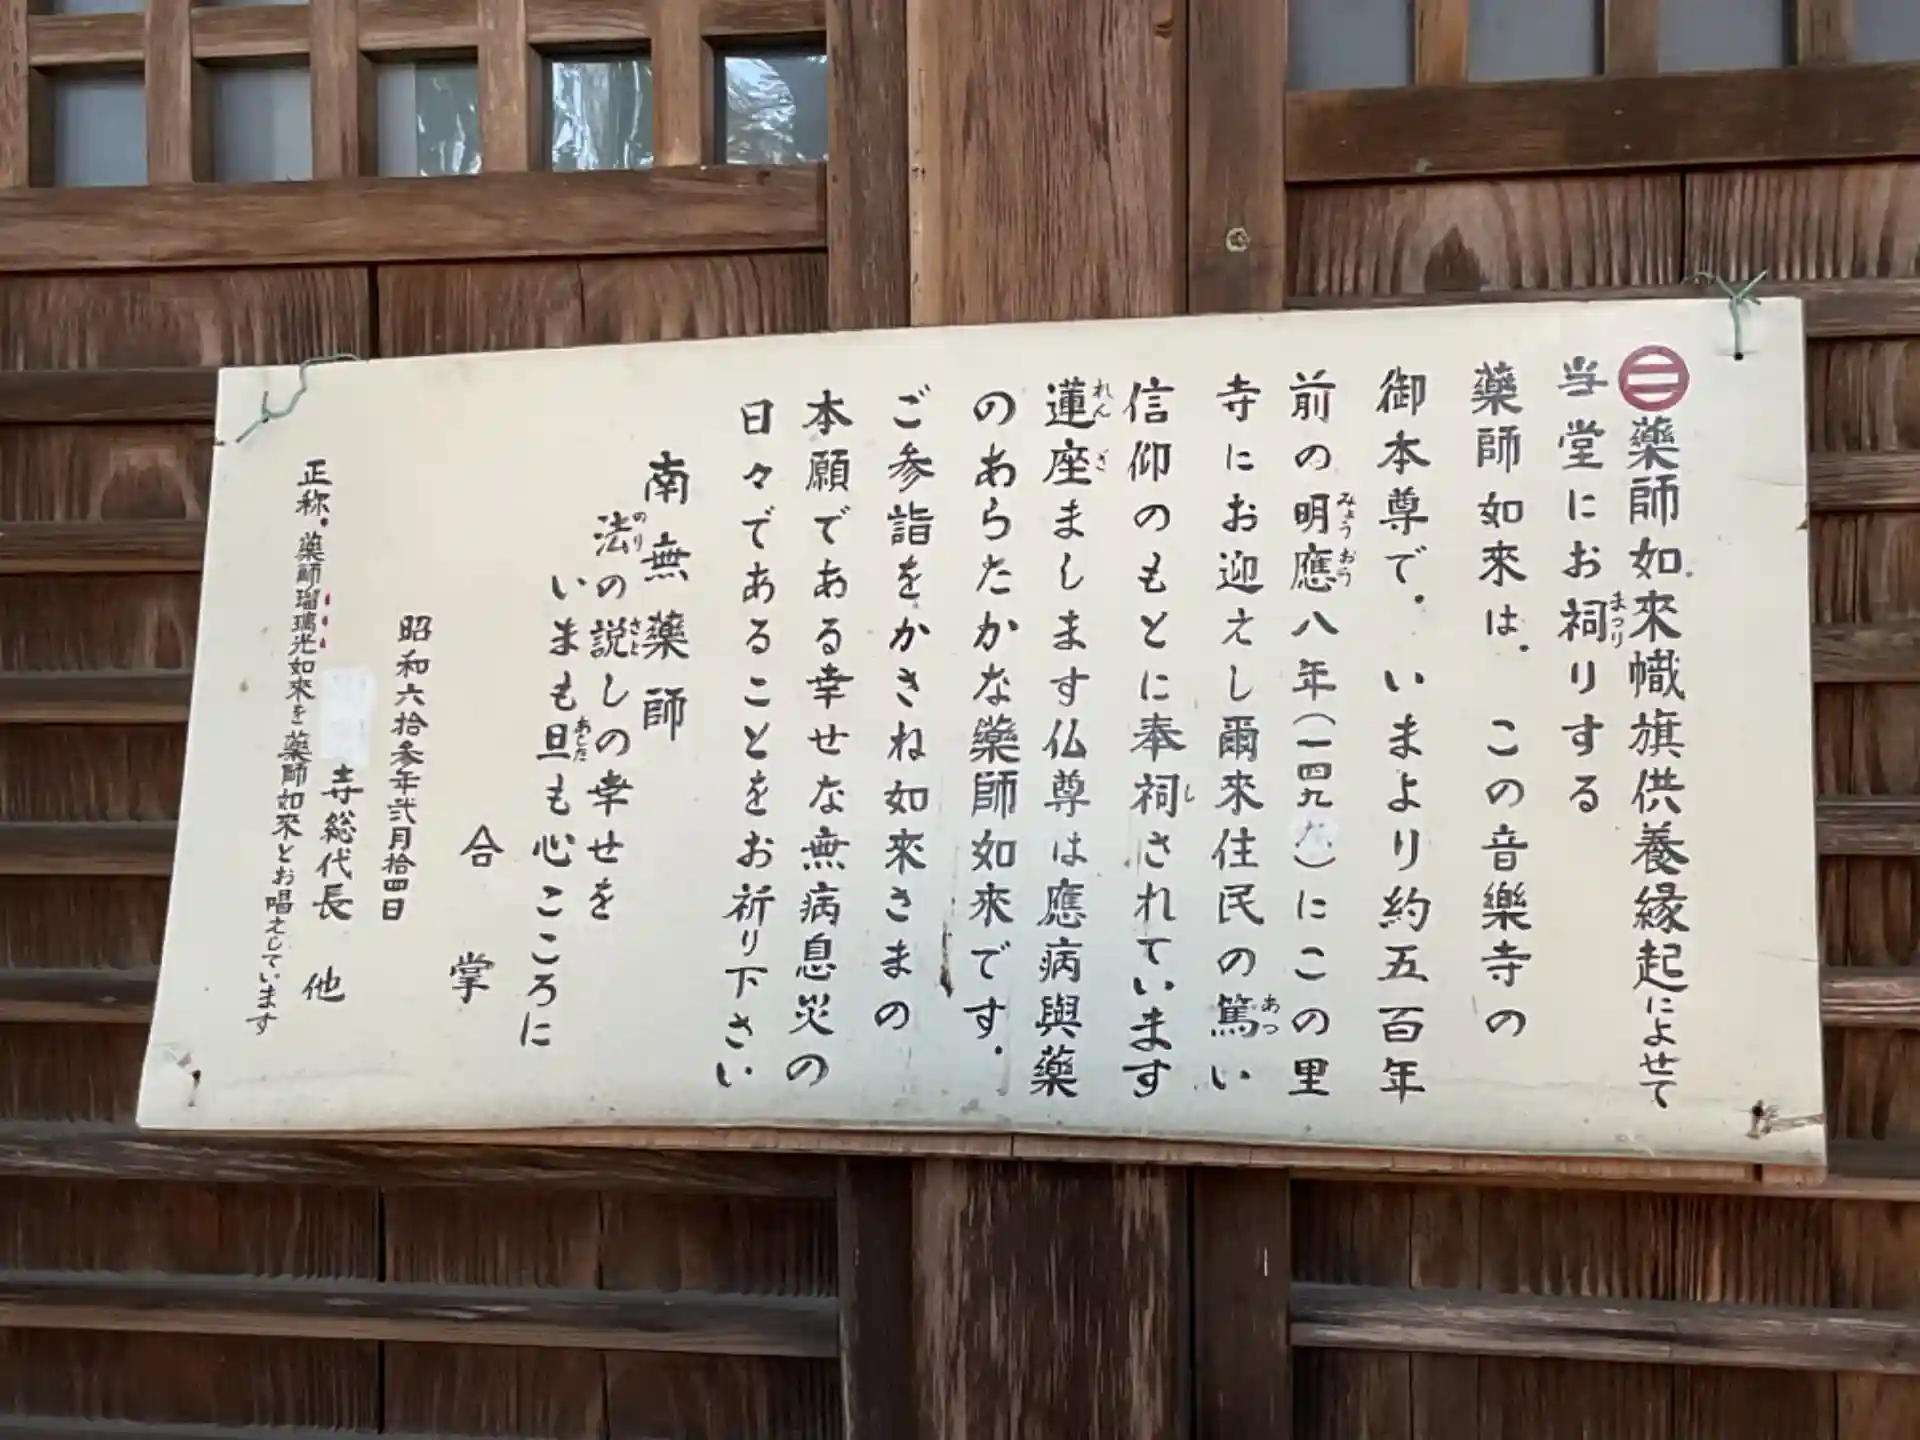 ㊁薬師如來幟旗供養縁起によせて
当堂にお祠りする
薬師如來は、この音樂寺の
御本尊で、いまより約五百年
前の明應八年(一四九九)にこの里
寺にお迎えし爾来住民の篤い
信仰のもとに奉祠されています
蓮座まします仏尊は應病與薬
のあらたかな藥師如來です。
ご参詣をかさね如来さまの
本願である幸せな無病息災の
日々であることをお祈り下さい
南無薬師
法の説しの幸せを
いまも旦も心こころに
合掌
昭和六拾参年弐月拾四日
寺総代長 他
正称、薬師瑠璃光如来を薬師如来とお唱えしています